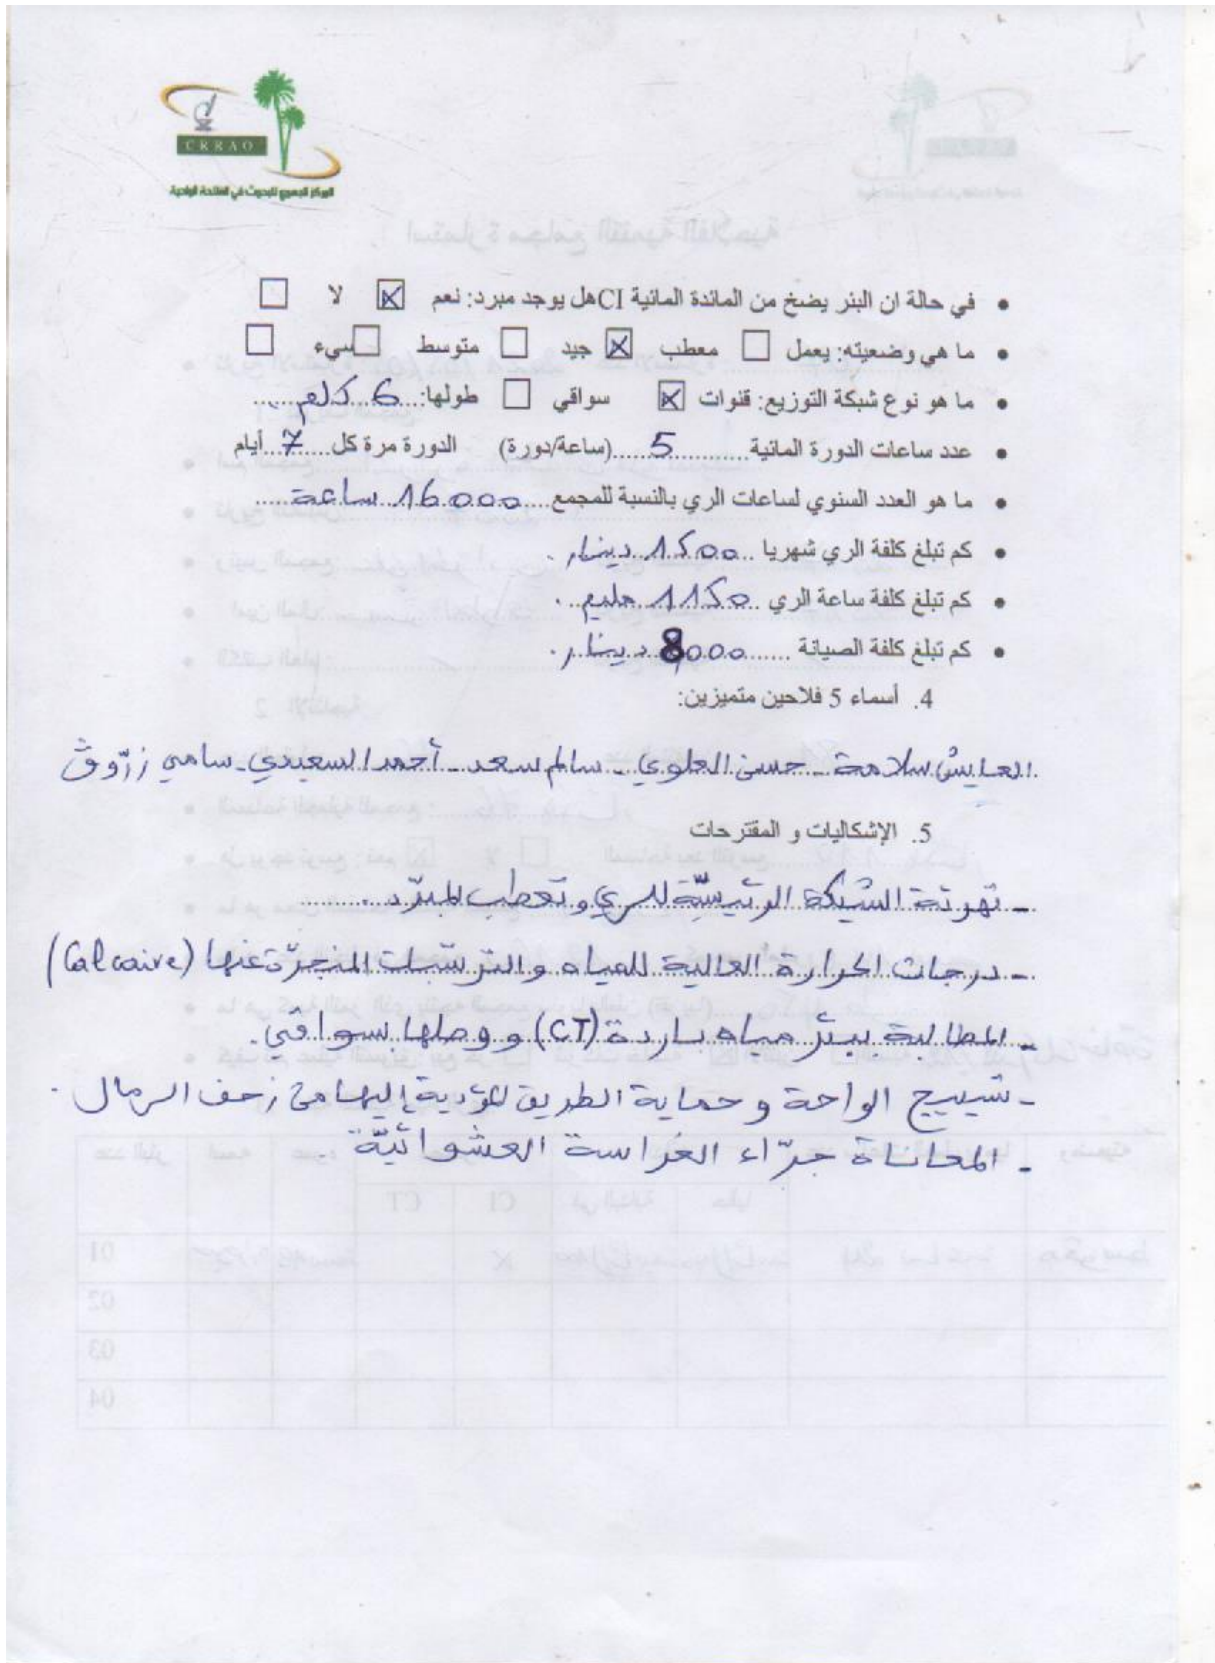 CRRAO
المركز الجهوي للبحوث في الفلاحة الواحية
• في حالة ان البئر يضخ من المائدة المائية CI هل يوجد مبرد: نعم ☒ لا ☐
• ما هي وضعيته: يعمل ☐ معطب ☒ جيد ☐ متوسط ☐ سيء ☐
• ما هو نوع شبكة التوزيع: قنوات ☒ سواقي ☐ طولها: 6 كلم
• عدد ساعات الدورة المائية 5 (ساعة/دورة) الدورة مرة كل 7 أيام
• ما هو العدد السنوي لساعات الري بالنسبة للمجمع 16000 ساعة
• كم تبلغ كلفة الري شهريا 1500 دينار.
• كم تبلغ كلفة ساعة الري 1150 مليم.
• كم تبلغ كلفة الصيانة 8000 دينار.
4. أسماء 5 فلاحين متميزين:
العايش سلامة - حسن العلوي - سالم سعد - أحمد السعيدي - سامي زرّوق
5. الإشكاليات و المقترحات
- تهرئة الشبكة الرئيسيّة للري و تعطب المبرّد.
- درجات الحرارة العالية للمياه والترسّبات المنجرّة عنها (Calcaire)
- المطالبة ببئر مياه باردة (CT) ووصلها بسواقي.
- تسييج الواحة وحماية الطريق المؤدية إليها من زحف الرمال.
- المعاناة جرّاء الغراسة العشوائيّة.